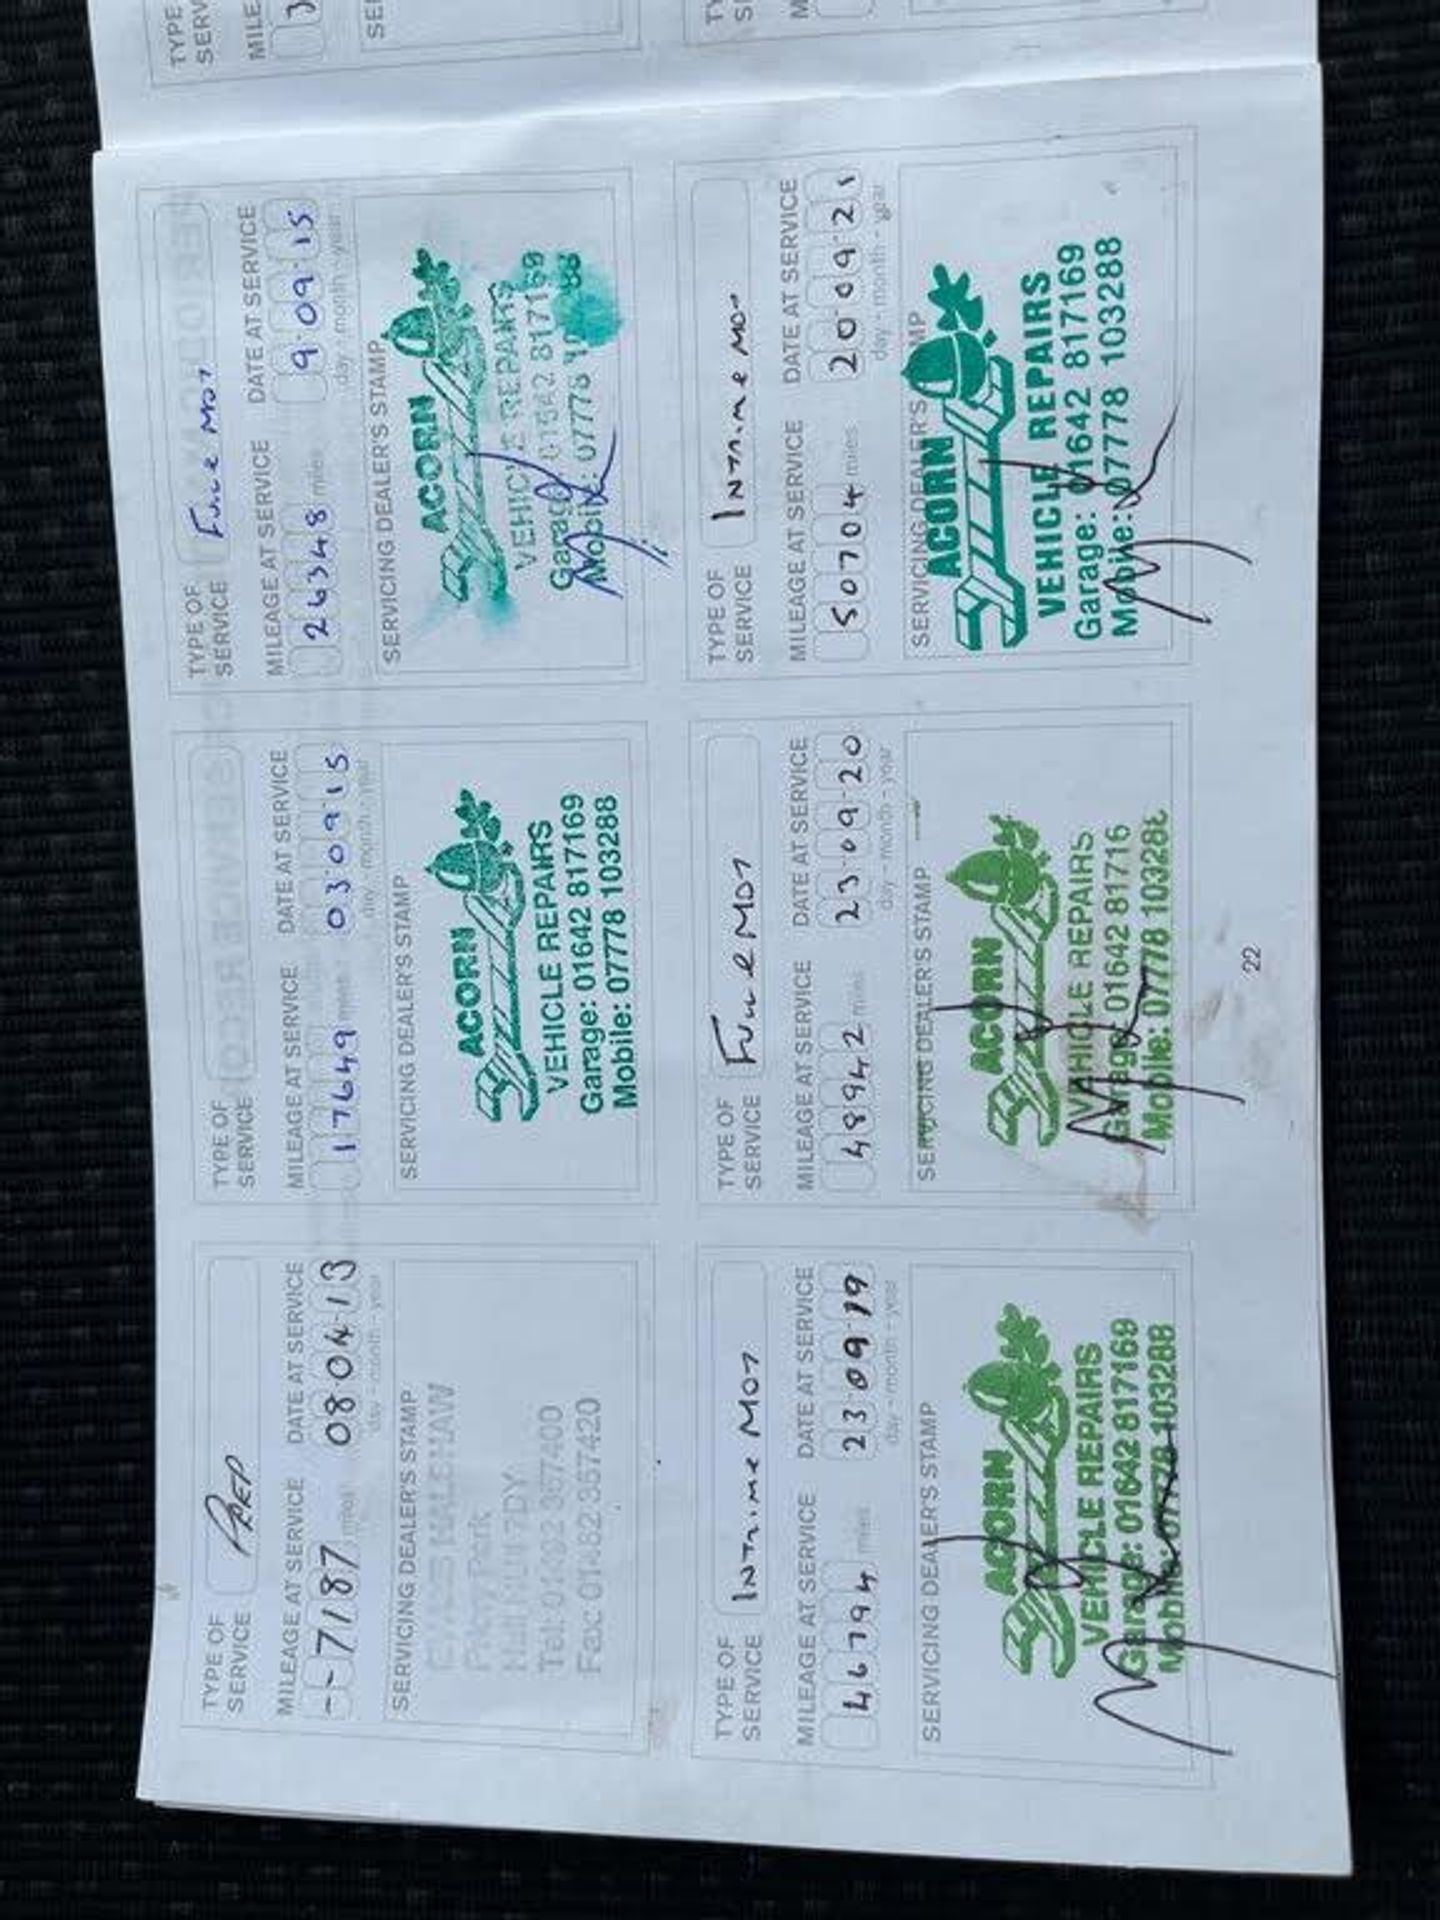 TYPE OF
SERVICE
PREP
MILEAGE AT SERVICE
DATE AT SERVICE
--7187 miles
080413
day - month - year
SERVICING DEALER'S STAMP
EVANS HALSHAW
Park
Fax: 01482 357420
TYPE OF
SERVICE
MILEAGE AT SERVICE
DATE AT SERVICE
17649
030915
day - month - year
SERVICING DEALER'S STAMP
ACORN
VEHICLE REPAIRS
Garage: 01642 817169
Mobile: 07778 103288
TYPE OF
SERVICE
MILEAGE AT SERVICE
DATE AT SERVICE
26348 miles
9·09·15
day - month - year
SERVICING DEALER'S STAMP
ACORN
VEHICLE REPAIRS
Garage: 01642 817169
Mobile: 07778
TYPE OF
SERVICE
MOT
MILEAGE AT SERVICE
DATE AT SERVICE
46794 miles
23·09·19
day - month - year
SERVICING DEALER'S STAMP
ACORN
VEHICLE REPAIRS
Garage: 01642 817169
Mobile: 07778 103288
TYPE OF
SERVICE
MOT
MILEAGE AT SERVICE
DATE AT SERVICE
48942 miles
23·09·20
day - month - year
SERVICING DEALER'S STAMP
ACORN
VEHICLE REPAIRS
Garage: 01642 81716
Mobile: 07778 10328
TYPE OF
SERVICE
MOT
MILEAGE AT SERVICE
DATE AT SERVICE
50704 miles
20·09·21
day - month - year
SERVICING DEALER'S STAMP
ACORN
VEHICLE REPAIRS
Garage: 01642 817169
Mobile: 07778 103288
22